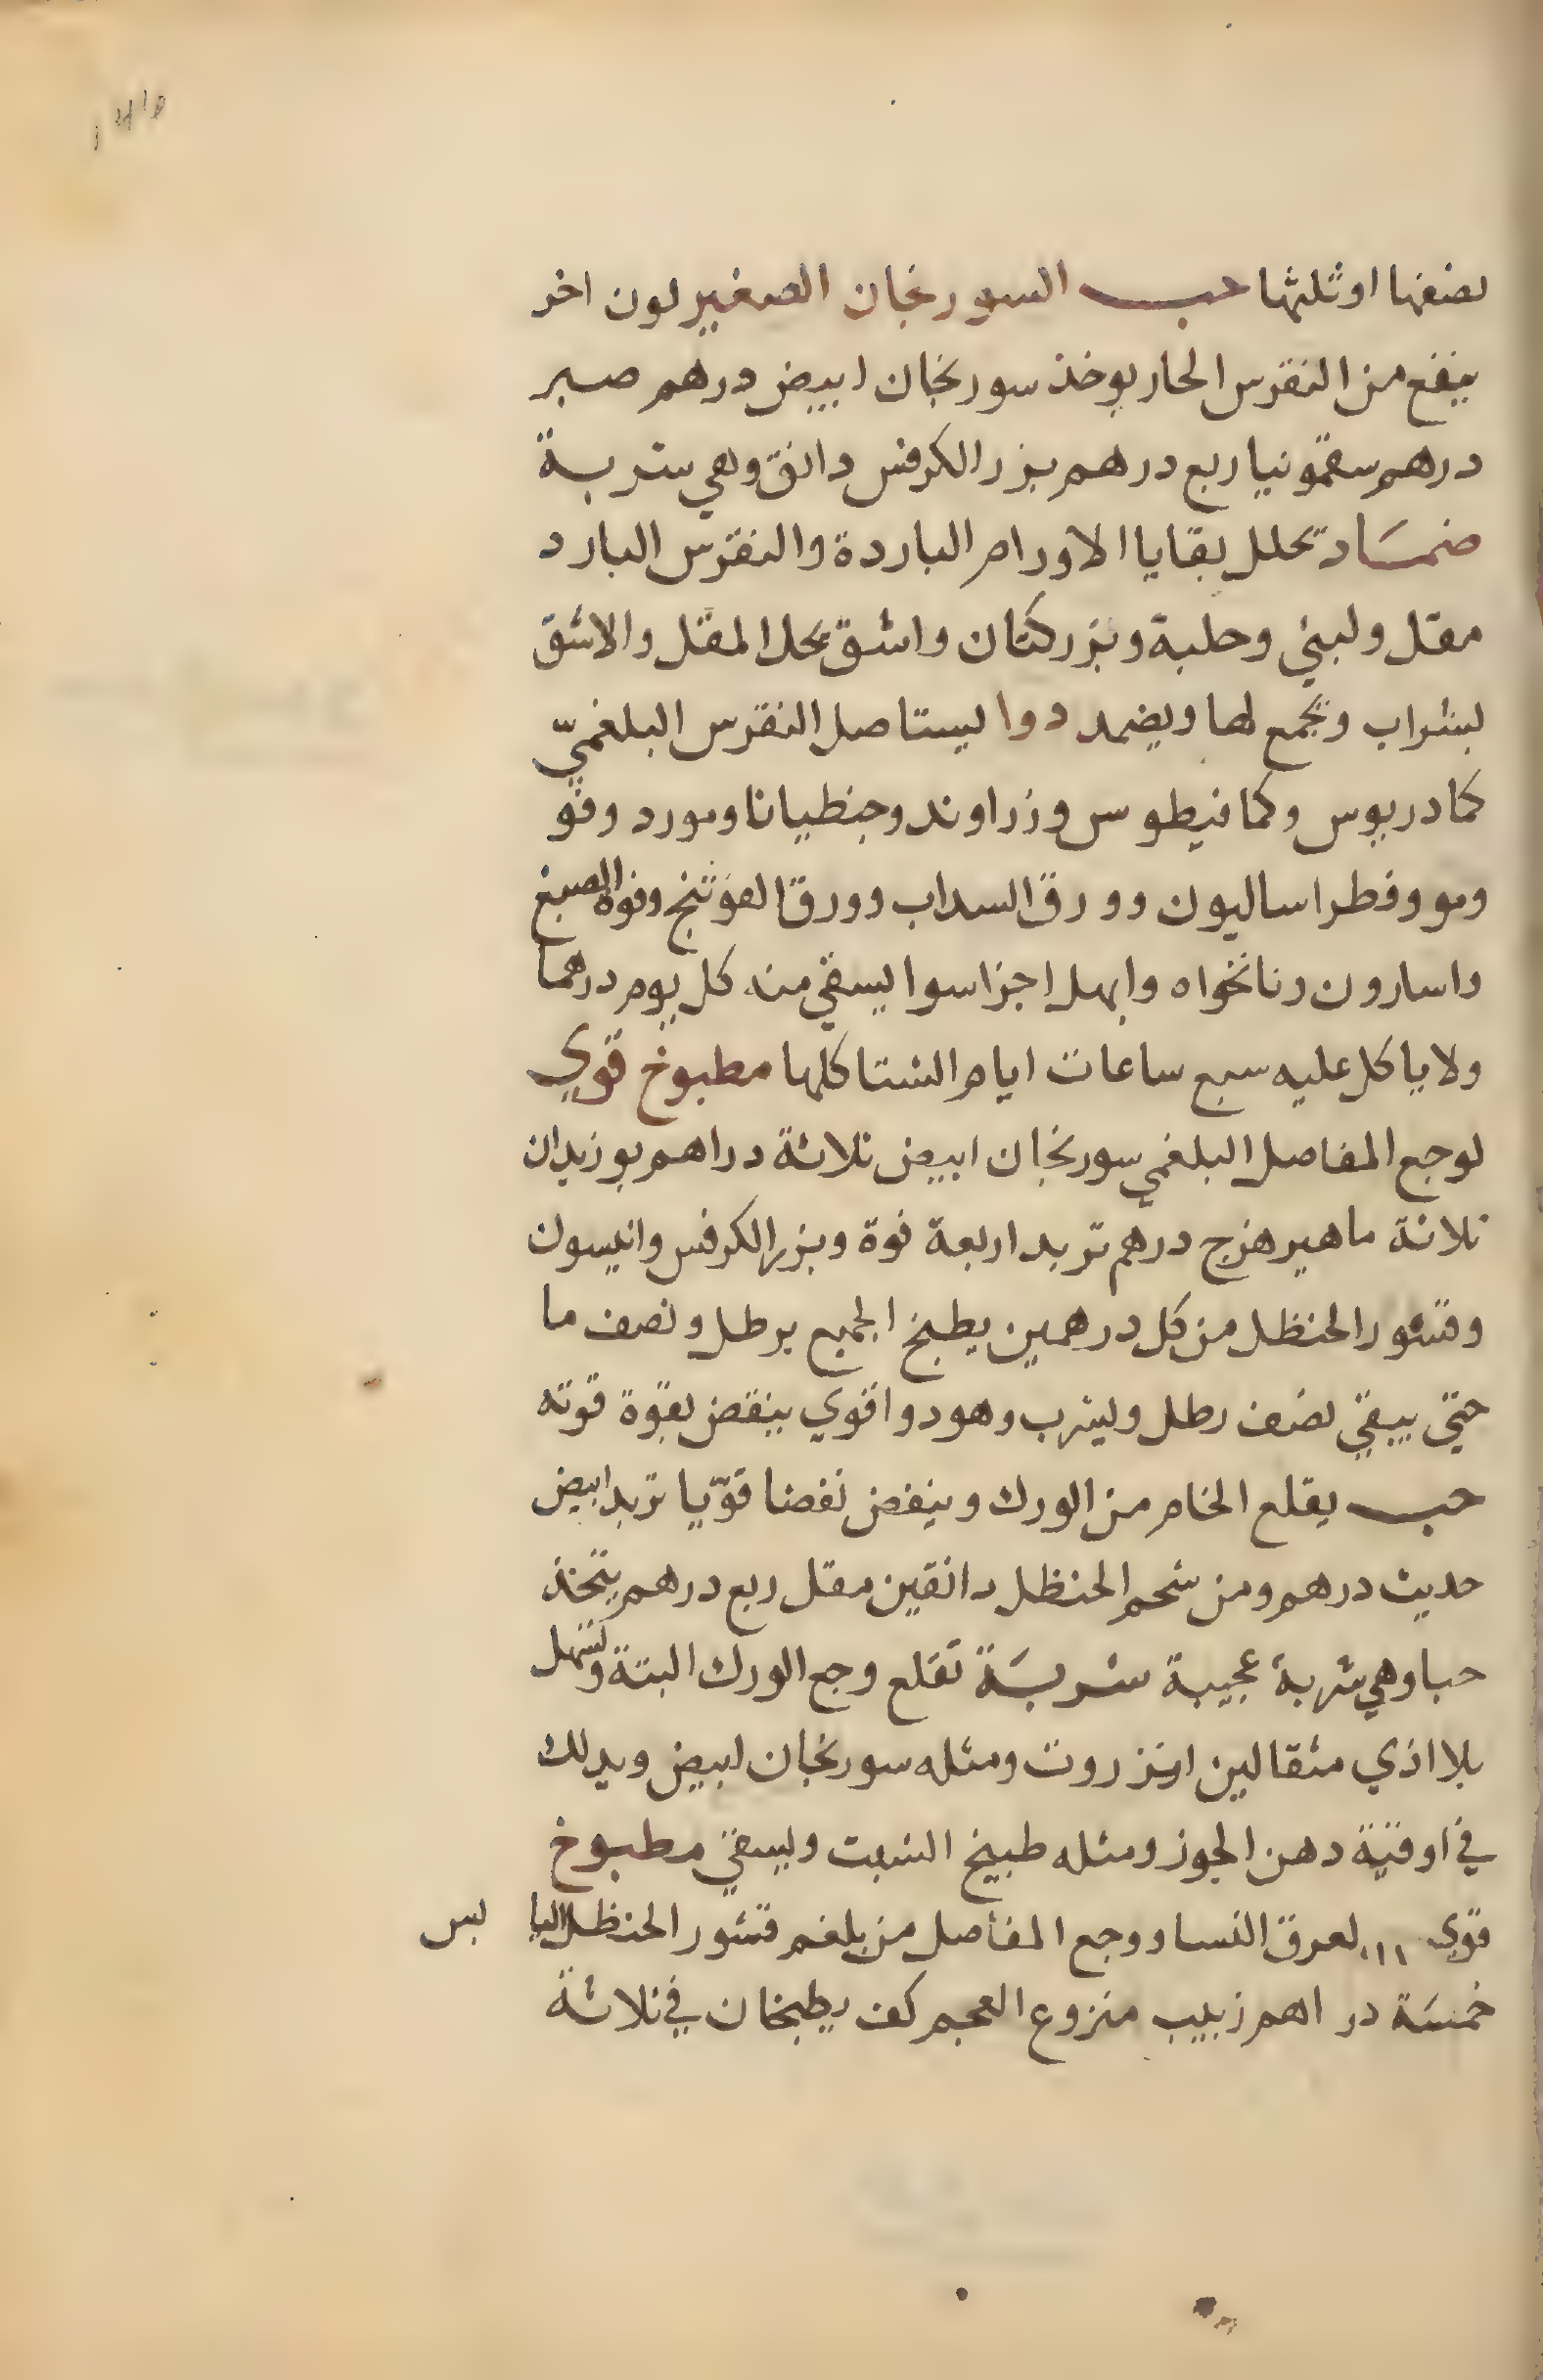 نصفها او ثلثها حب السورنجان الصغير لون اخر
ينفع من النقرس الحار يوخذ سورنجان ابيض درهم صبر
درهم سقمونيا ربع درهم بزر الكرفس دانق وهي شربة
ضمَاد تحلل بقايا الاورام الباردة والنقرس البارد
مقل ولبني وحلبة وبزر كتان واشق يحل المقل والاشق
بشراب ويجمع لها ويضمد دوا يستاصل النقرس البلغميّ
كمادريوس وكمافيطوس وزراوند وجنطيانا ومورد وفو
ومو وفطراساليون وورق السداب وورق الفوثنج وفوة الصبغ
واسارون ونانخواه وابهل اجزا سوا يسقي منه كل يوم درهما
ولا ياكل عليه سبع ساعات ايام الشتا كلها مطبوخ قوي
لوجع المفاصل البلغمي سورنجان ابيض ثلاثة دراهم بوزيدان
ثلاثة ماهيرهزج درهم تربد اربعة فوة وبزر الكرفس وانيسون
وقشور الحنظل من كل درهمين يطبخ الجميع برطل ونصف ما
حتي يبقي نصف رطل ويشرب وهو دوا قوي ينقض بقوة قوته
حب يقلع الخام من الورك وينفض نفضا قوّيا تربد ابيض
حديث درهم ومن شحم الحنظل دانقين مقل ربع درهم يتخذ
حبا وهي شربة عجيبة شربَة تقلع وجع الورك البتة وتسهل
بلا اذي مثقالين انزروت ومثله سورنجان ابيض ويدلك
في اوقية دهن الجوز ومثله طبيخ الشبت ويسقي مطبوخ
قوي لعرق النسا ووجع المفاصل من بلغم قشور الحنظل اليابس
خمسَة دراهم زبيب منزوع العجم كف يطبخان في ثلاثة